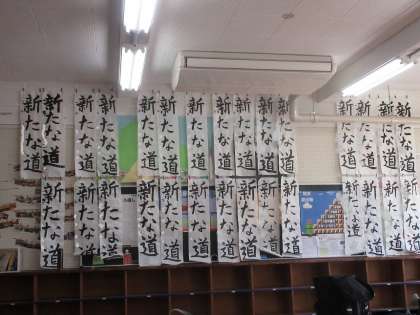 新たな道
新たな道
新たな道
新たな道
新たな道
新たな道
新たな道
新たな道
新たな道
新たな道
新たな道
新たな道
新たな道
新たな道
新たな道
新たな道
新たな道
新たな道
新たな道
新たな道
新たな道
新たな道
新たな道
新たな道
新たな道
新たな道
新たな道
新たな道
新たな道